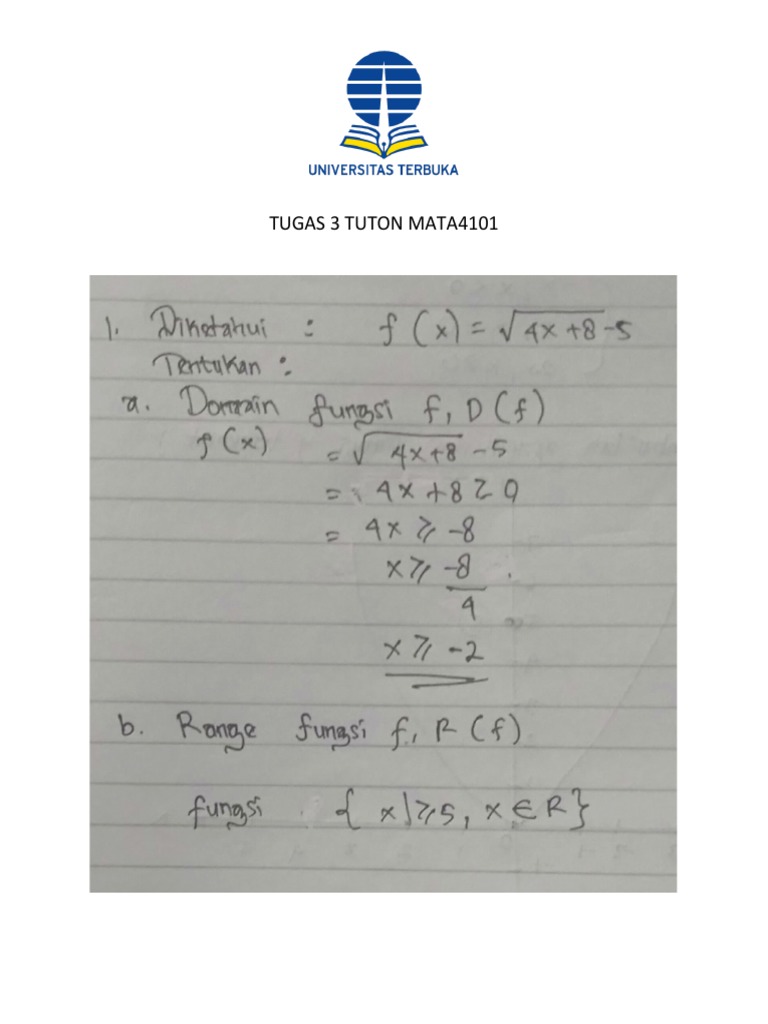 UNIVERSITAS TERBUKA
TUGAS 3 TUTON MATA4101
1. Diketahui : f (x) = √4x +8 -5
Tentukan :
a. Domain fungsi f, D (f)
f (x) = √4x+8 -5
= 4x +8 ≥ 0
= 4x ≥ -8
x ≥ -8
4
x ≥ -2
b. Range fungsi f, R (f)
fungsi { x | ≥ 5, x ∈ R }